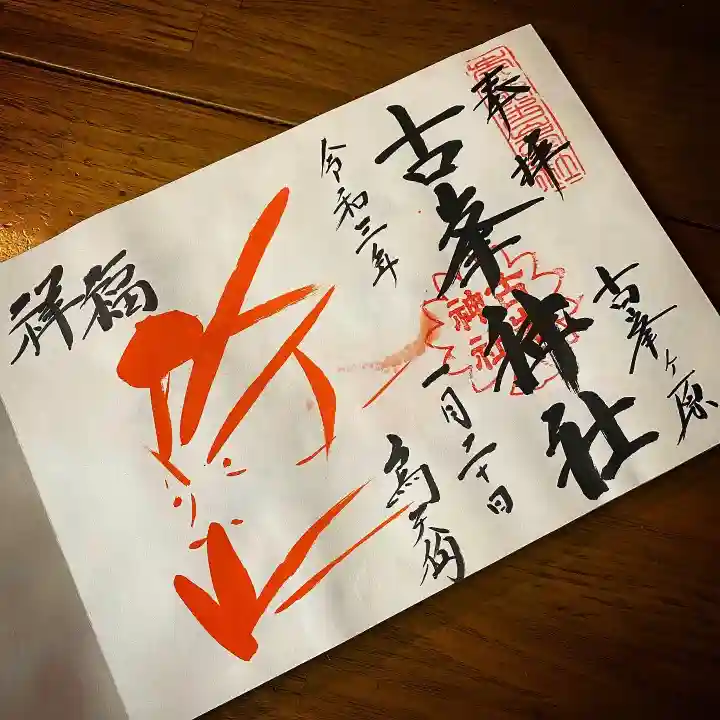 奉拝
古峯ヶ原
古峯神社
令和三年
一月二十日
烏天狗
祥福